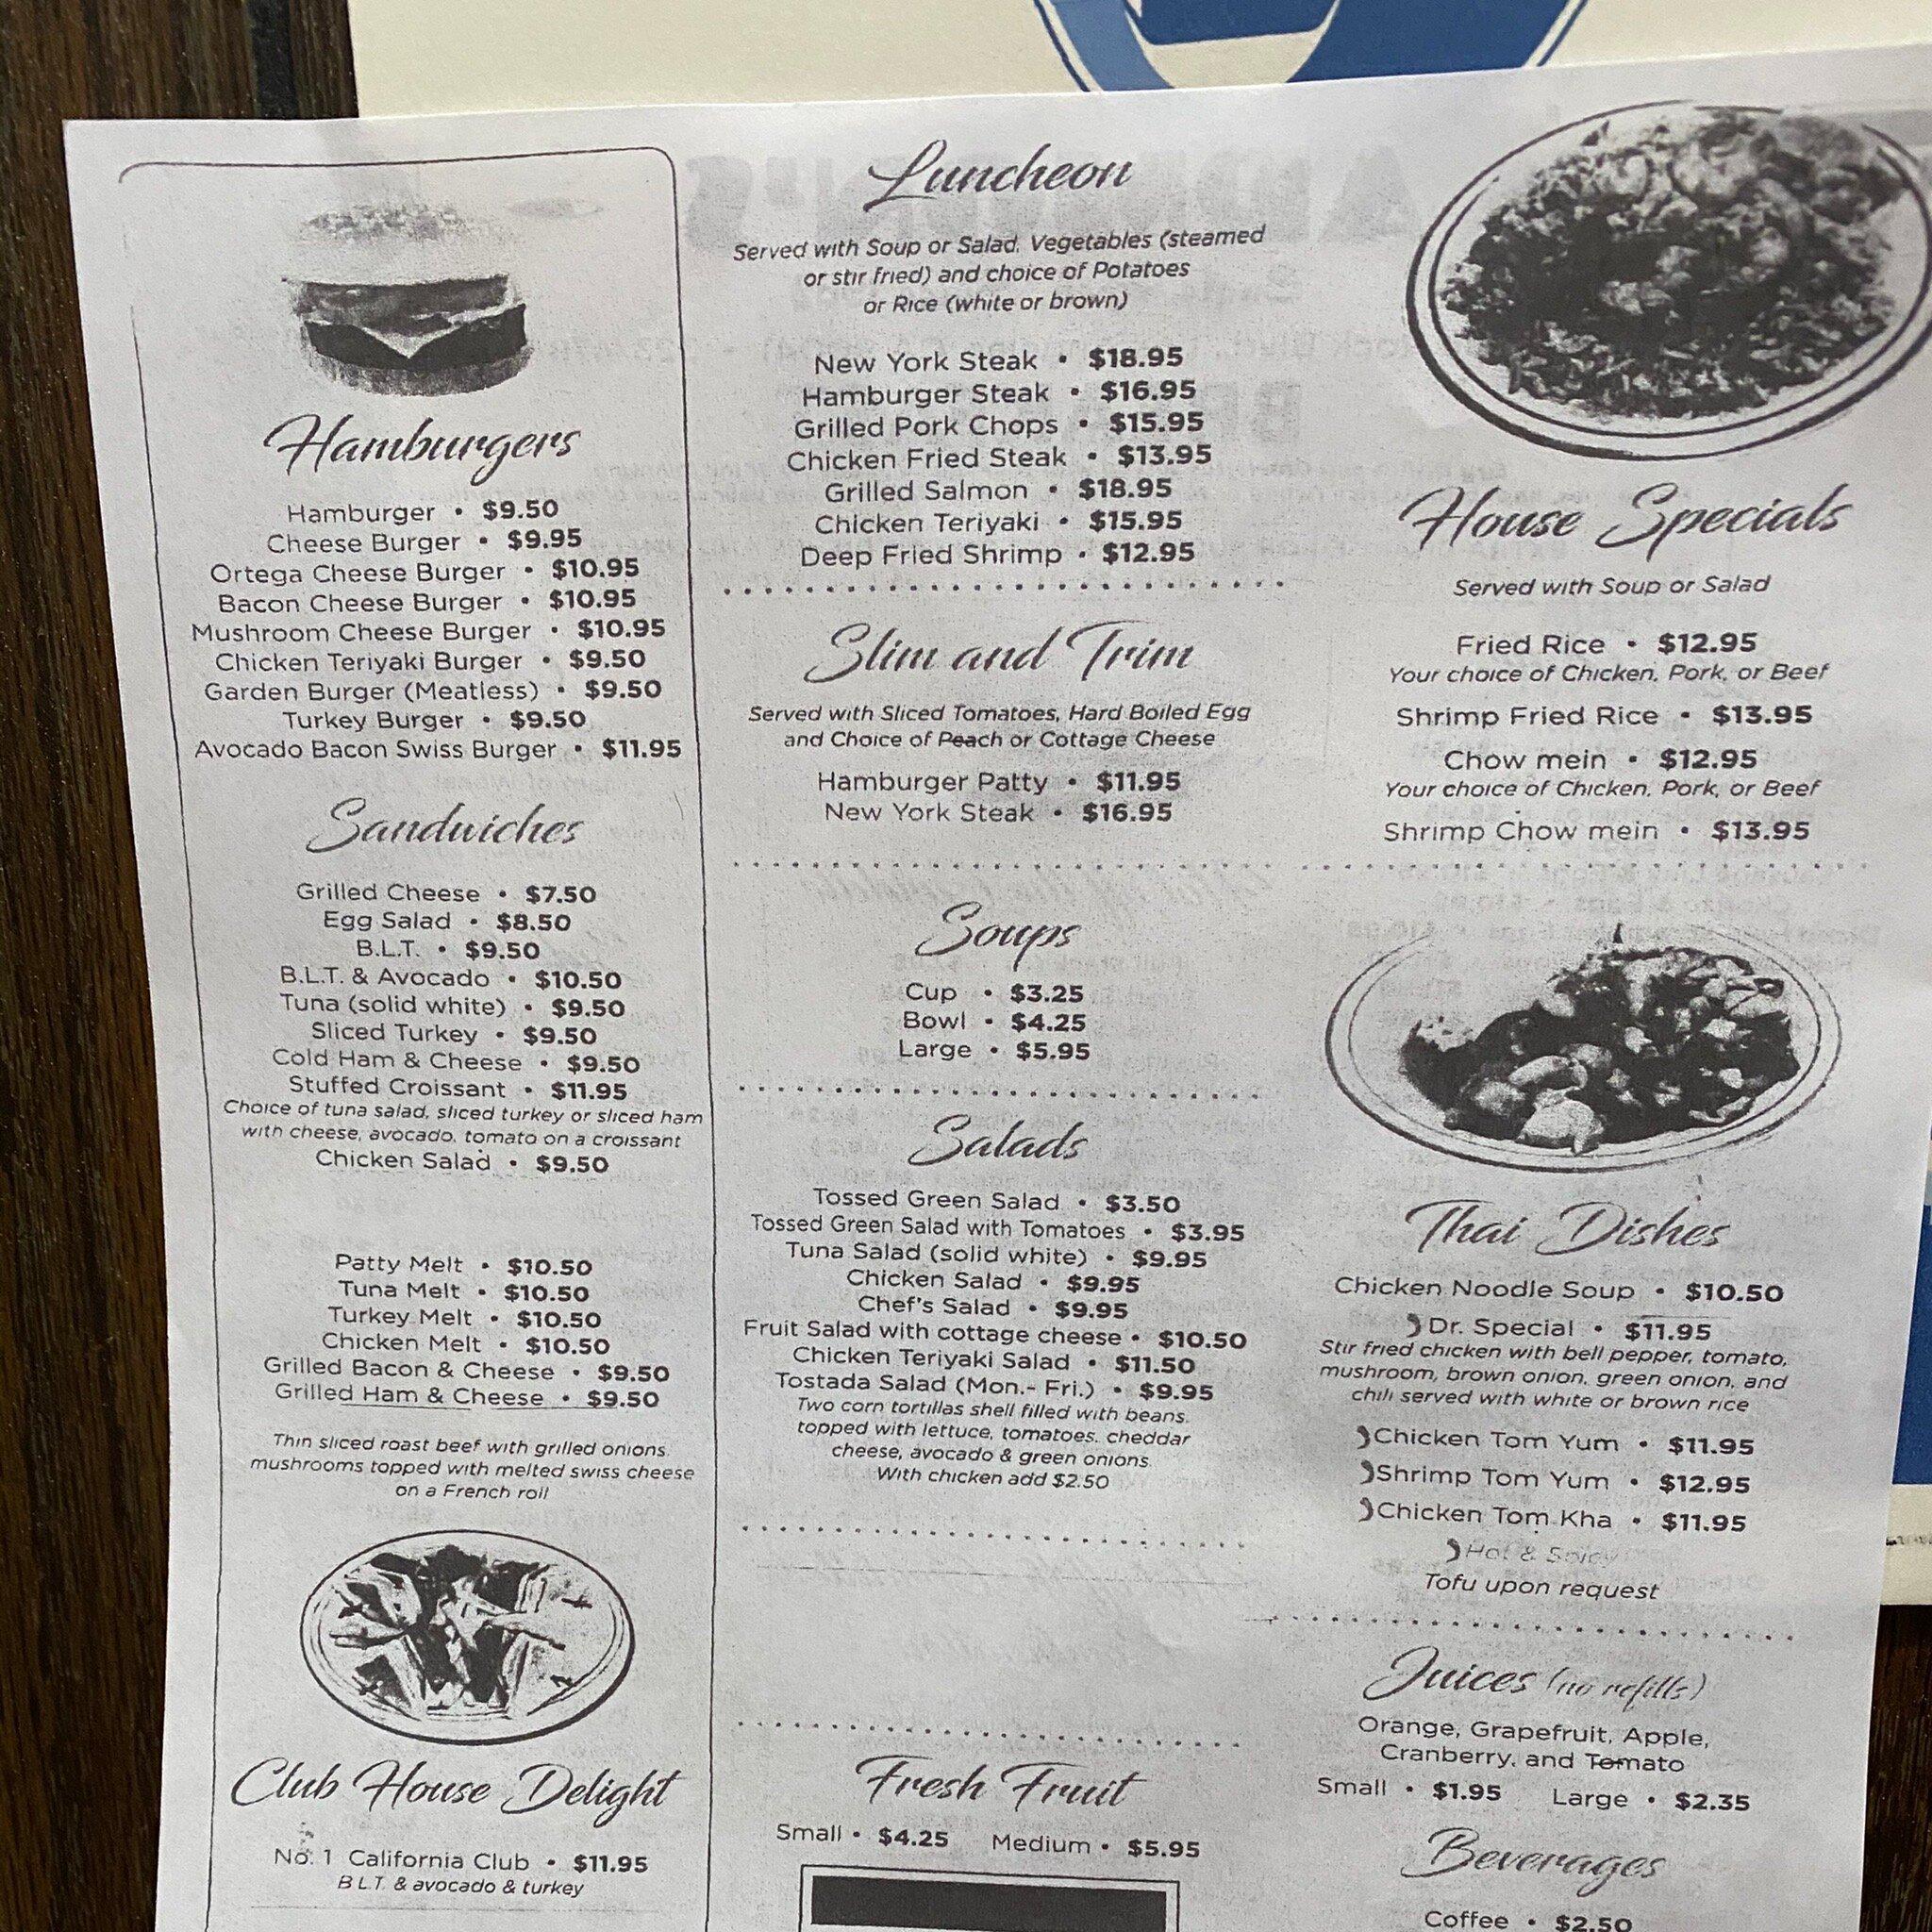 Hamburgers
Hamburger • $9.50
Cheese Burger • $9.95
Ortega Cheese Burger • $10.95
Bacon Cheese Burger • $10.95
Mushroom Cheese Burger • $10.95
Chicken Teriyaki Burger • $9.50
Garden Burger (Meatless) • $9.50
Turkey Burger • $9.50
Avocado Bacon Swiss Burger • $11.95
Sandwiches
Grilled Cheese • $7.50
Egg Salad • $8.50
B.L.T. • $9.50
B.L.T. & Avocado • $10.50
Tuna (solid white) • $9.50
Sliced Turkey • $9.50
Cold Ham & Cheese • $9.50
Stuffed Croissant • $11.95
Choice of tuna salad, sliced turkey or sliced ham
with cheese, avocado, tomato on a croissant
Chicken Salad • $9.50
Patty Melt • $10.50
Tuna Melt • $10.50
Turkey Melt • $10.50
Chicken Melt • $10.50
Grilled Bacon & Cheese • $9.50
Grilled Ham & Cheese • $9.50
Thin sliced roast beef with grilled onions,
mushrooms topped with melted swiss cheese
on a French roll
Club House Delight
No. 1 California Club • $11.95
B.L.T. & avocado & turkey
Luncheon
Served with Soup or Salad, Vegetables (steamed
or stir fried) and choice of Potatoes
or Rice (white or brown)
New York Steak • $18.95
Hamburger Steak • $16.95
Grilled Pork Chops • $15.95
Chicken Fried Steak • $13.95
Grilled Salmon • $18.95
Chicken Teriyaki • $15.95
Deep Fried Shrimp • $12.95
Slim and Trim
Served with Sliced Tomatoes, Hard Boiled Egg
and Choice of Peach or Cottage Cheese
Hamburger Patty • $11.95
New York Steak • $16.95
Soups
Cup • $3.25
Bowl • $4.25
Large • $5.95
Salads
Tossed Green Salad • $3.50
Tossed Green Salad with Tomatoes • $3.95
Tuna Salad (solid white) • $9.95
Chicken Salad • $9.95
Chef's Salad • $9.95
Fruit Salad with cottage cheese • $10.50
Chicken Teriyaki Salad • $11.50
Tostada Salad (Mon.- Fri.) • $9.95
Two corn tortillas shell filled with beans,
topped with lettuce, tomatoes, cheddar
cheese, avocado & green onions.
With chicken add $2.50
Fresh Fruit
Small • $4.25 Medium • $5.95
House Specials
Served with Soup or Salad
Fried Rice • $12.95
Your choice of Chicken, Pork, or Beef
Shrimp Fried Rice • $13.95
Chow mein • $12.95
Your choice of Chicken, Pork, or Beef
Shrimp Chow mein • $13.95
Thai Dishes
Chicken Noodle Soup • $10.50
Dr. Special • $11.95
Stir fried chicken with bell pepper, tomato,
mushroom, brown onion, green onion, and
chili served with white or brown rice
Chicken Tom Yum • $11.95
Shrimp Tom Yum • $12.95
Chicken Tom Kha • $11.95
Hot & Spicy
Tofu upon request
Juices (no refills)
Orange, Grapefruit, Apple,
Cranberry, and Tomato
Small • $1.95 Large • $2.35
Beverages
Coffee • $2.50